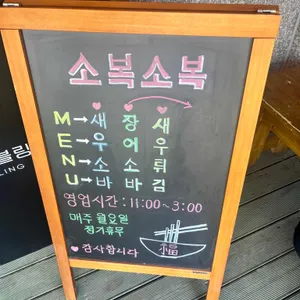 소복소복
M → 새 장 새
E → 우 어 우
N → 소 소 튀
U → 바 바 김
영업시간 : 11:00 ~ 3:00
매주 월요일
정기휴무
감사합니다
福
블링
LING